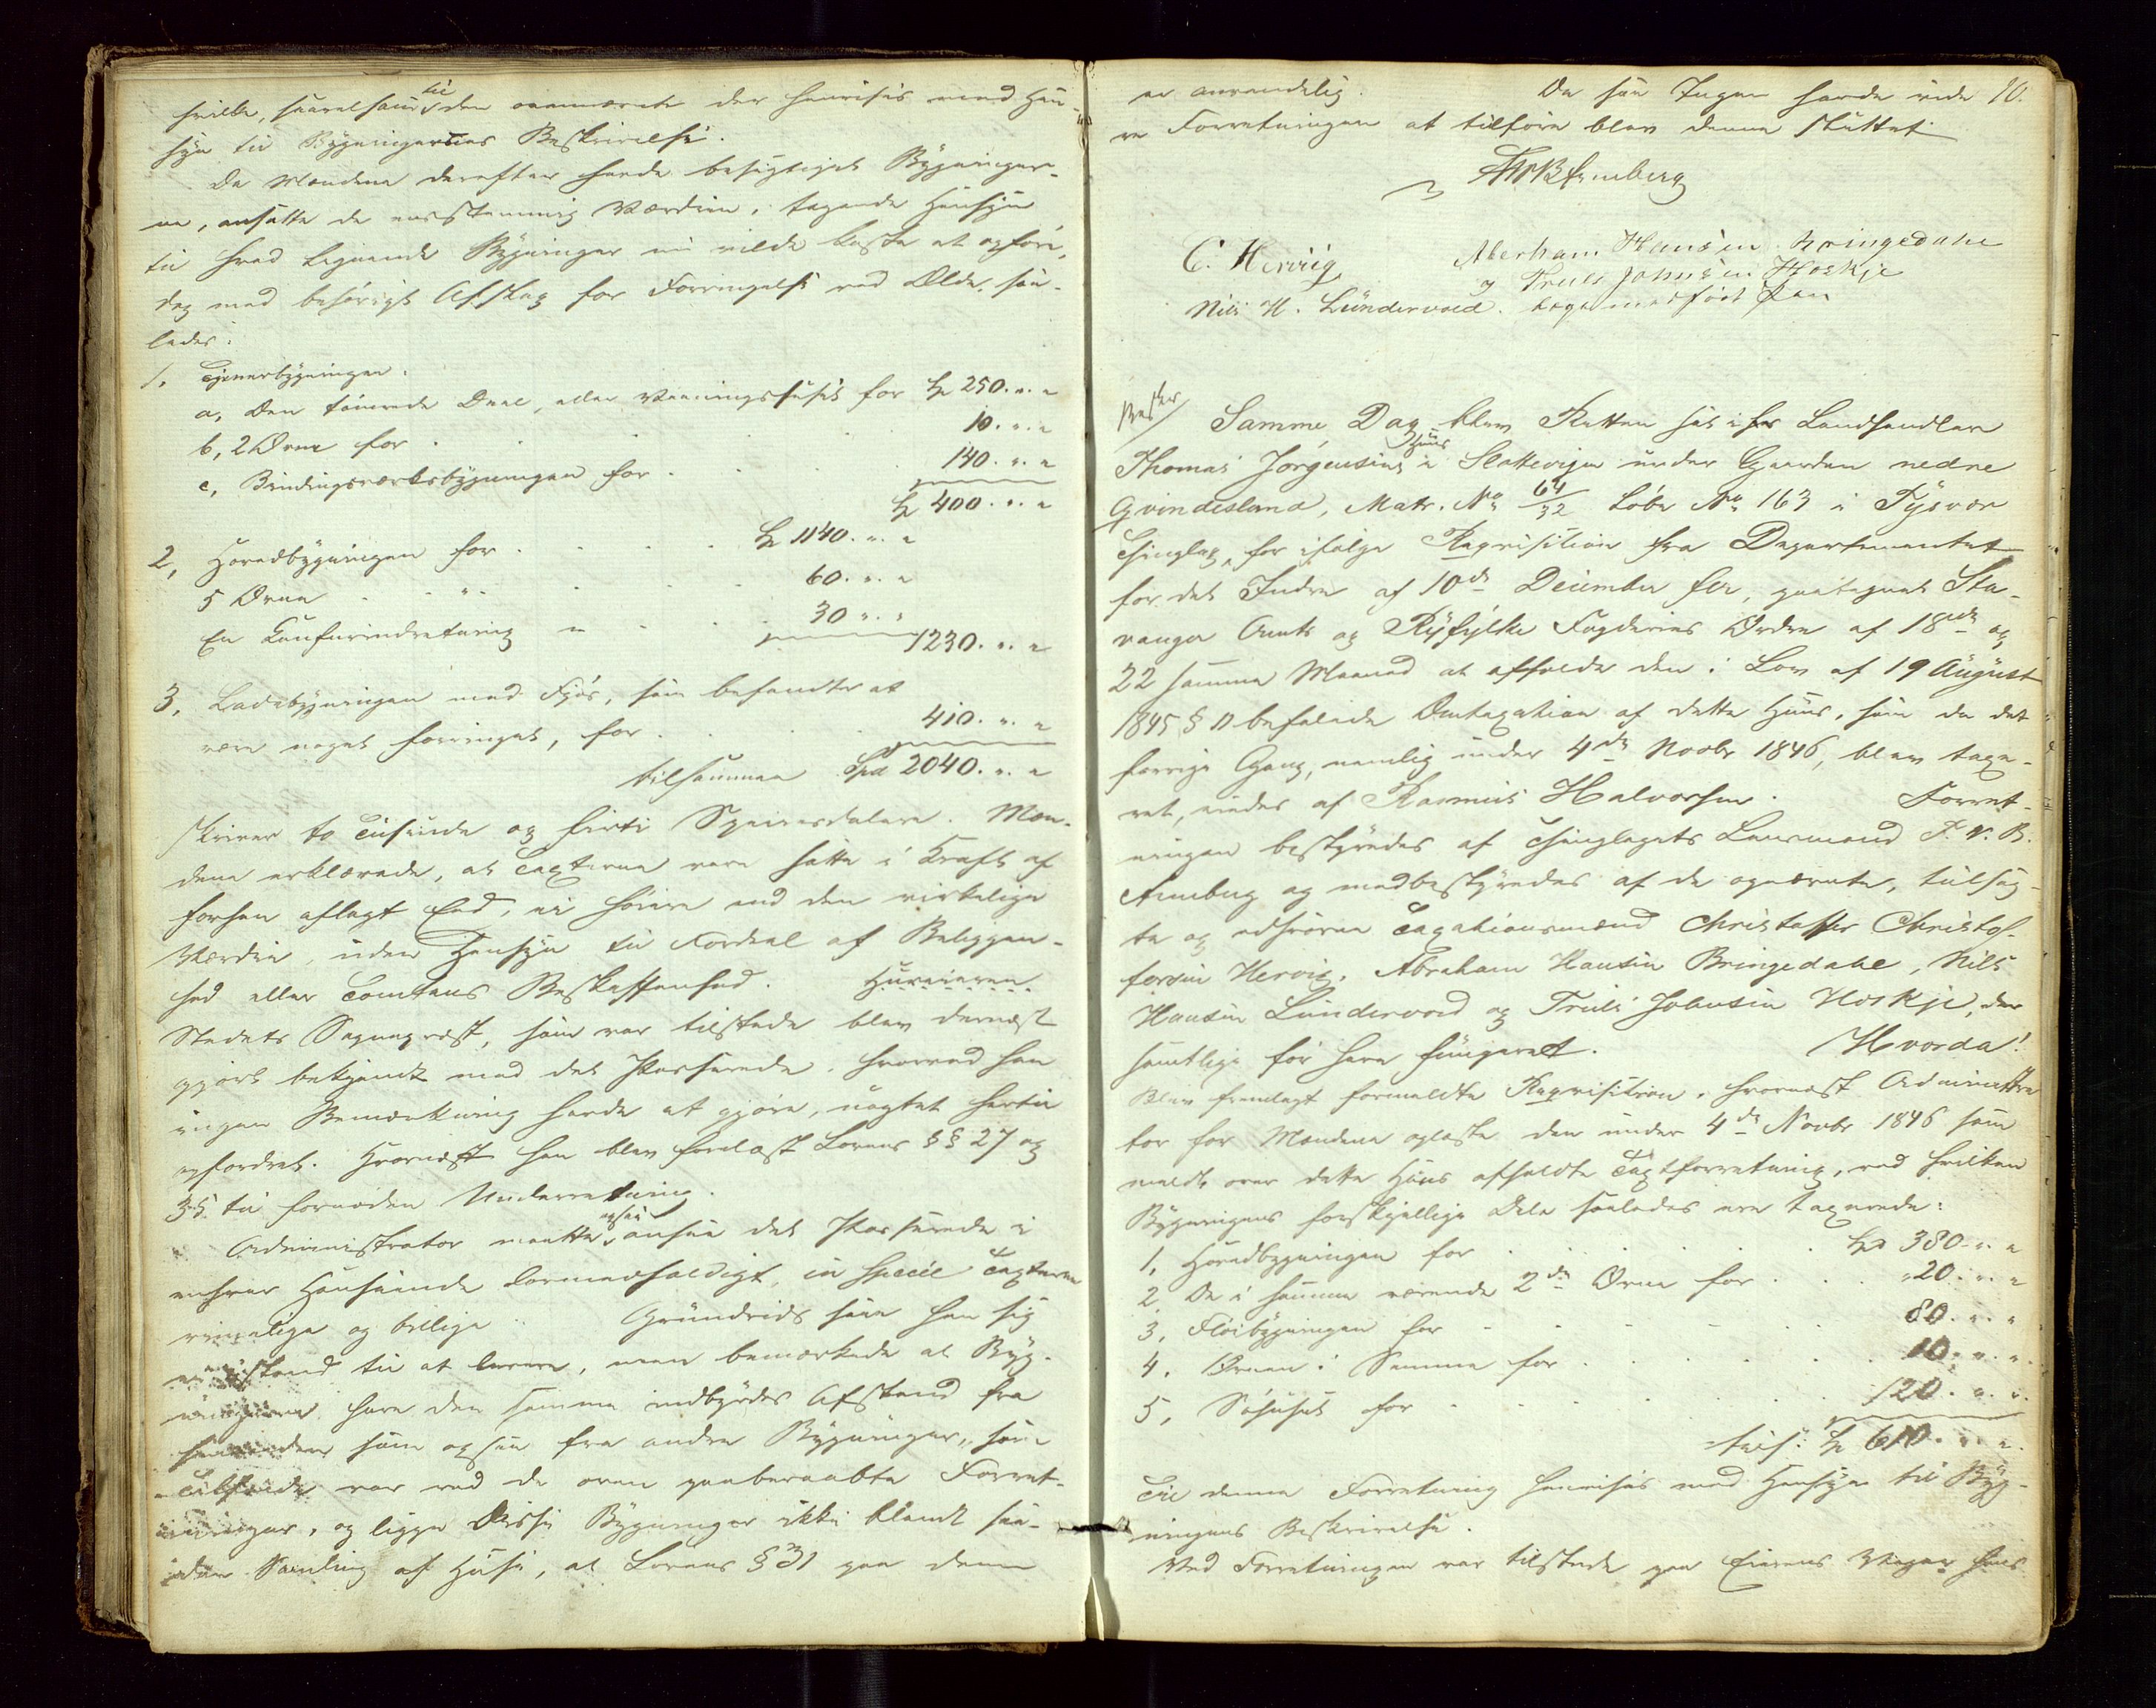 hvilke, saavelsom til den ovennævnte der henvises med Hen-
syn til Bygningernes Beskrivelse.
Da Mændene derefter havde besigtiget Bygninger-
ne, ansatte de eensstemmig Værdien, tagende Hensyn
til hvad lignende Bygninger nu vilde koste at opføre,
dog med behørigt Afslag for Forringelse ved Ælde, saa-
ledes:
1, Tjenerbygningen:
a, Den tømrede Deel, eller Vaaningshuset for Sp 250. " "
b, 2 Ovne for . . . 10. " "
c, Bindingsværksbygningen for . . 140. " "
Sp 400. " "
2, Hovedbygningen for . . . . Sp 1140. " "
5 Ovne . . " . . . 60. " "
En Komfurindretning " . . . 30 " "
1230. " "
3, Ladebygningen med Fjøs, som befandtes at
være noget forringet, for . . . 410. " "
tilsammen Spd 2040. " "
skriver to Tusinde og firti Speciesdalere. Mæn-
dene erklærede, at Taxterne vare satte i Kraft af
forhen aflagt Eed, ei høiere end den virkelige
Værdie, uden Hensyn til Fordeel af Beliggen-
hed eller Tomtens Beskaffenhed. Huuseieren
Stedets Sognepræst, som var tilstede blev dernæst
gjort bekjendt med det Passerede, hvorved han
ingen Bemærkning havde at gjøre, uagtet hertil
opfordret. Hvornæst han blev forelæst Lovens §§ 27 og
35 til fornøden Underretning.
Administrator maatte ogsaa ansee det Passerede i
enhver Henseende lovmedholdigt, in specie Taxterne
rimelige og billige. Grundrids saae han sig
ei istand til at levere, men bemærkede at Byg-
ningerne have den samme indbyrdes Afstand fra
hverandre som ogsaa fra andre Bygninger, som
Tilfælde var ved de oven paaberaabte Forret-
ninger, og ligge disse Bygninger ikke blandt saa-
dan Samling af Huse, at Lovens § 31 paa dem
er anvendelig. Da saa Ingen havde vide 10.
re Forretningen at tilføre blev denne sluttet
FWBAmeberg
C. Hervig Aberham Hansen Bringedahl
og Truls Johnsen Hoskje
Nils H. Lündervold. begge med ført Pen
Samme Dag blev Retten sat i Landhandler
Thomas Jørgensens Huus i Slottevigen under Gaarden nedre
Qvindesland, Matr. No 64/32 Løbe No 163 i Tysvær
Thinglag, for ifølge Reqvisition fra Departementet
for det Indre af 10de December før, paategnet Sta-
vanger Amts og Ryfylke Fogderies Ordre af 18de og
22 samme Maaned at afholde den i Lov af 19 August
1845 § 11 befalede Omtaxation af dette Huus, som da det
forrige Gang, nemlig under 4de Novbr 1846, blev taxe-
ret, eiedes af Rasmus Halvorsen. Forret-
ningen bestyredes af Thinglagets Lensmand F. W. B.
Ameberg og medbestyredes af de opnævnte, tilsag-
te og edsvorne Taxationsmænd Christoffer Christof-
fersen Hervig, Abraham Hansen Bringedahl, Nils
Hansen Lundervold og Truls Johnsen Hoskje, der
samtlige før have fungeret. Hvorda!
Blev fremlagt formeldte Reqvisition, hvornæst Administra
tor for Mændene oplæste den under 4de Novbr 1846 som
meldt over dette Huus afholdte Taxtforretning, ved hvilken
Bygningens forskjellige Dele saaledes ere taxerede:
1, Hovedbygningen for . . . . . Sp 380. " "
2, De i samme værende 2de Ovne for . . . " 20. " "
3, Fløibygningen for . . . . . 80. " "
4, Ovnen i Samme for . . . . . 10. " "
5, Søhuset for . . . . . 120. " "
tils: Sp 610. " "
Til denne Forretning henvises med Hensyn til Byg-
ningens Beskrivelse.
Ved Forretningen var tilstede paa Eierens Vegne hans